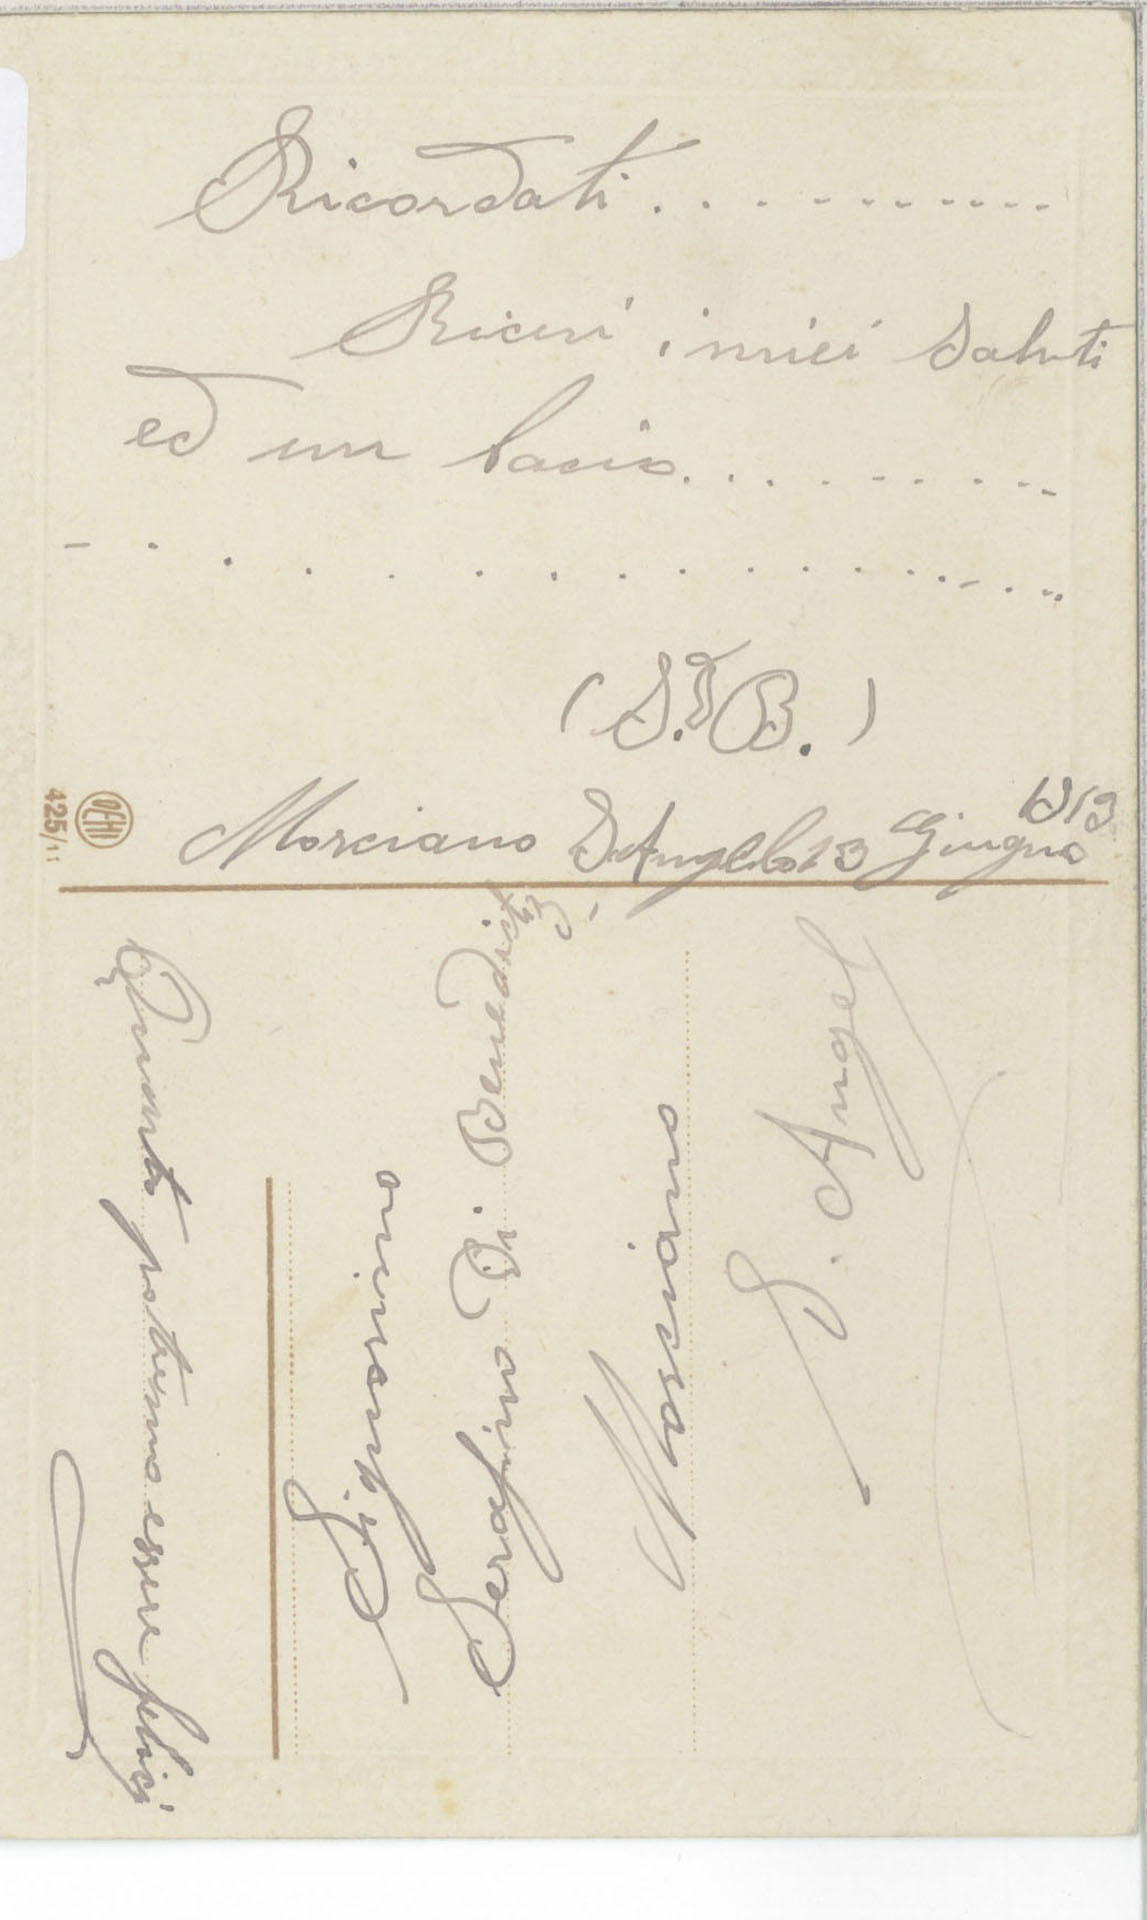 Ricordati . . . . . . . . . . .
Ricevi i miei saluti
ed un bacio . . . . . . . . .
- . . . . . . . . . . . . . . . . .
(S. D B.)
1913
Morciano S. Angelo 13 Giugno
OCHI
425/11
Quando potremo essere felici
Signorino
Serafino Di Benedict
Marciano
S. Angel